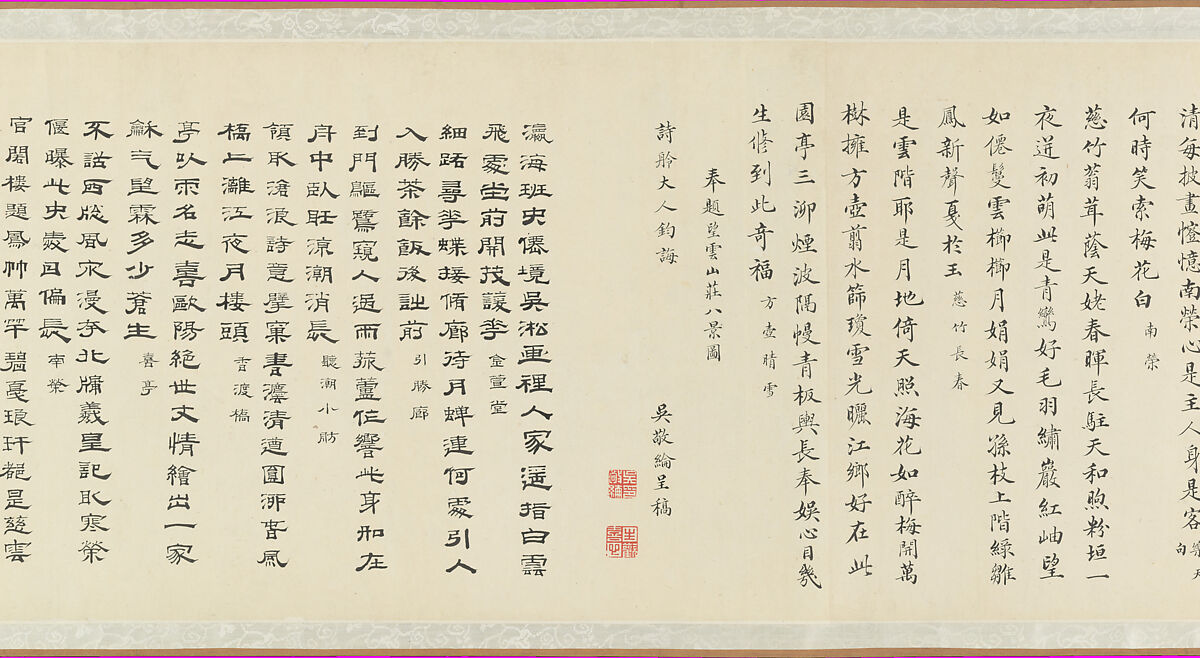 清每披畫憶憶南榮心是主人身是客
何時笑索梅花白 南榮
慈竹蓊茸蔭天姥春暉長駐天和煦粉垣一
夜迸初萌此是青鸞好毛羽繡巖紅岫望
如僊鬘雲櫛櫛月娟娟又見孫枝上階綠雛
鳳新聲戛於玉 慈竹長春
是雲階耶是月地倚天照海花如醉梅開萬
樹擁方壺翦水篩瓊雪光曬江鄉好在此
園亭三泖煙波隔幔青板輿長奉娛心目幾
生修到此奇福 方壺晴雪
奉題望雲山莊八景圖
詩舲大人鈞誨
吳敬綸呈稿
瀛海班史僊境吳淞畫裡人家遥指白雲
飛處坐前開茂諼華 金萱堂
細路尋華蝶接脩廊待月蟬連何處引人
入勝茶餘飯後詿前 引勝廊
到門鷗鷺窺人過雨菰蘆作響此身如在
舟中臥聽涼潮消長 聽潮小舫
領取滄浪詩意擘窠書灋清遒圓泖春風
橋上灘江夜月樓頭 香渡橋
亭以雨名志喜歐陽絕世文情繪出一家
龢气望霖多少蒼生 喜亭
不話西牕風雨漫夸北牖羲皇記取寒榮
偃曝此中歲月偏長 南榮
官閣樓題鳳帥萬竿碧戛琅玕都是慈雲